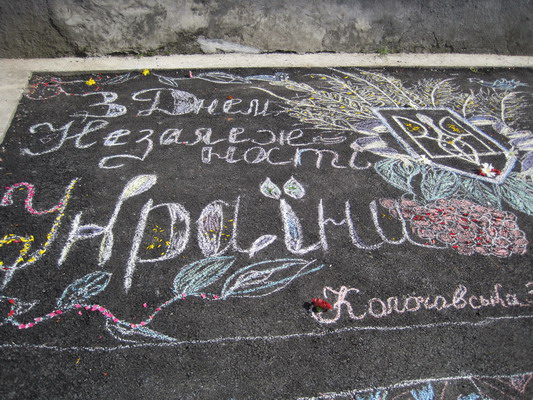 З Днем
Незалеж-
ності
України
Колочавська З